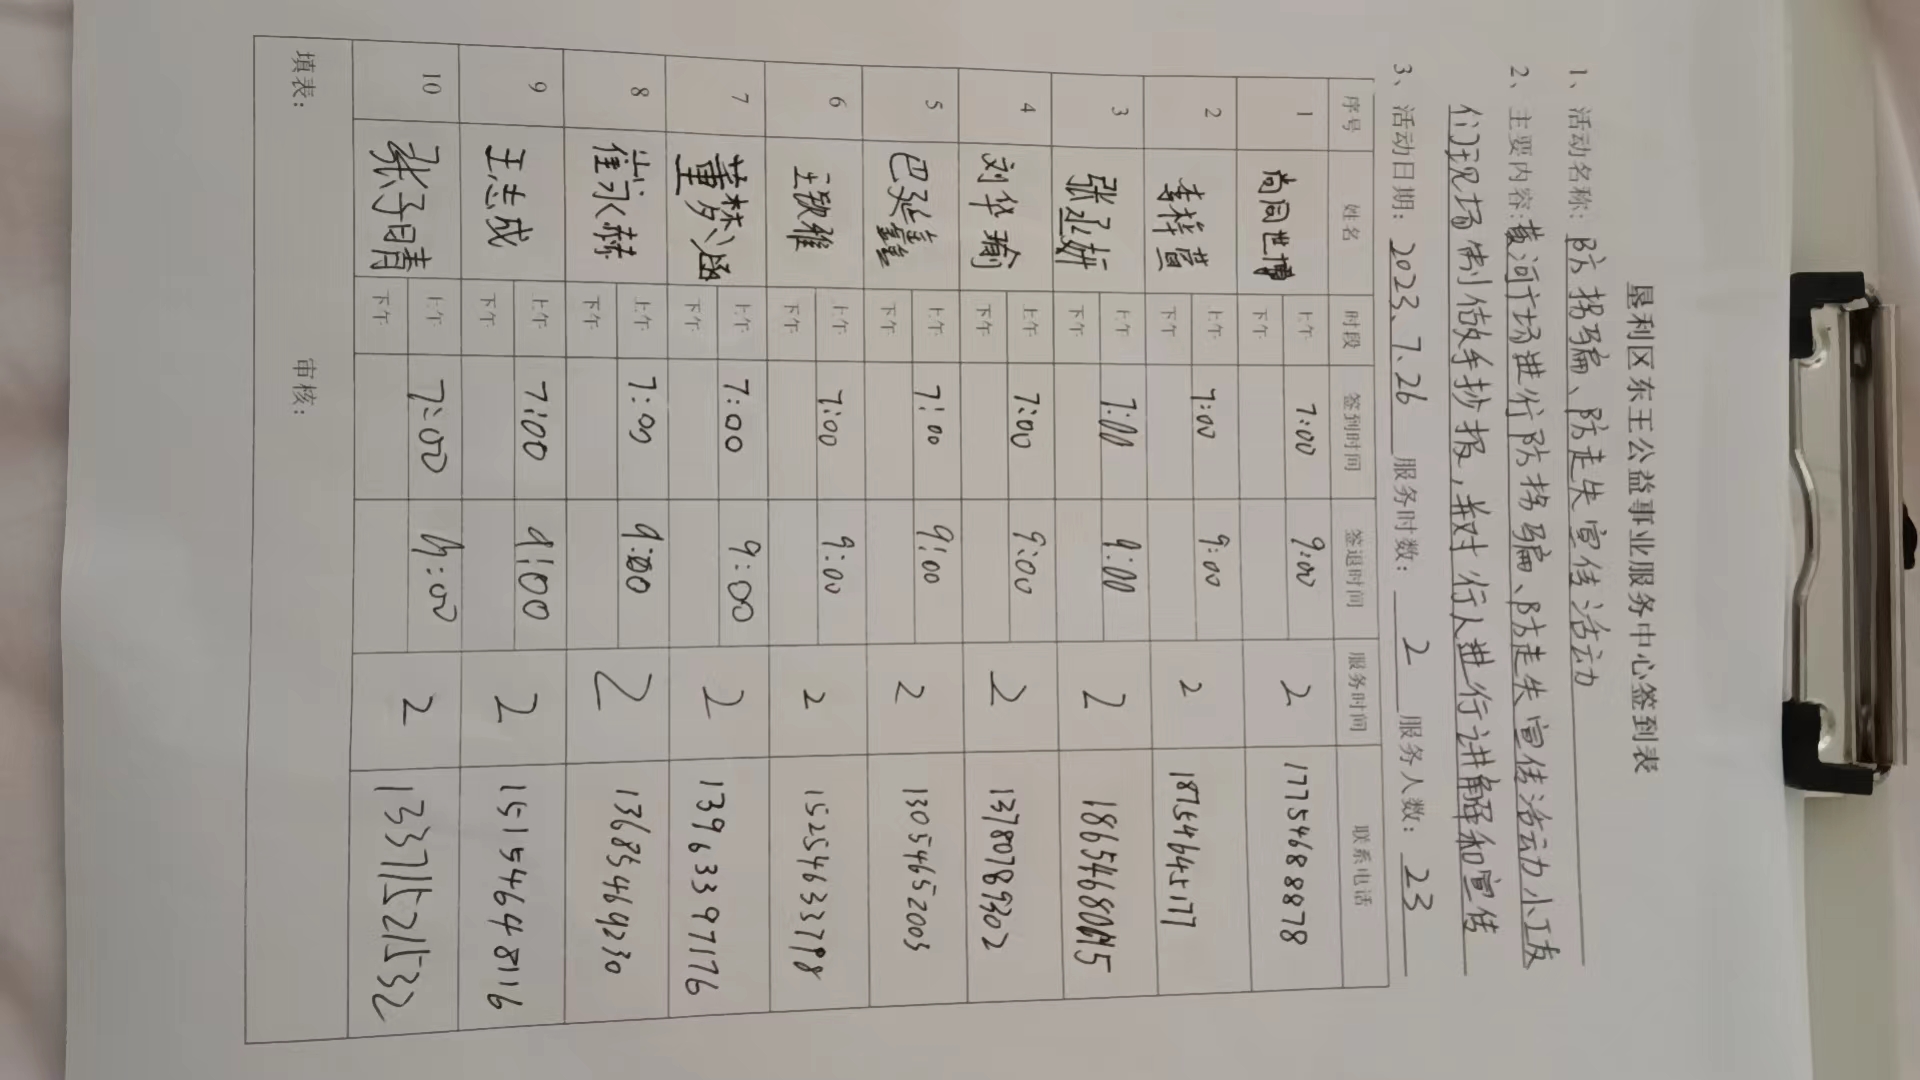 垦利区东王公益事业服务中心签到表
1、活动名称：防拐骗、防走失宣传活动
2、主要内容：黄河广场进行防拐骗、防走失宣传活动小工友
们现场制做手抄报，并对行人进行讲解和宣传
3、活动日期：2023、7、26 服务时数：2 服务人数：23
序号 姓名 时段 签到时间 签退时间 服务时间 联系电话
1 尚同世博 上午 7:00 9:00 2 17754688878
下午
2 李梓萱 上午 7:00 9:00 2 18754645177
下午
3 张丞妍 上午 7:00 9:00 2
下午
4 刘华瑜 上午 7:00 9:00 2 13780789302
下午
5 巴延鑫 上午 7:00 9:00 2 13054652003
下午
6 王颖雅 上午 7:00 9:00 2 15254633798
下午
7 董梦涵 上午 7:00 9:00 2 13963397176
下午
8 崔永赫 上午 7:00 9:00 2 13685469230
下午
9 王志成 上午 7:00 9:00 2 15154648116
下午
10 张子晴 上午 7:00 9:00 2 13371521532
下午
填表： 审核：